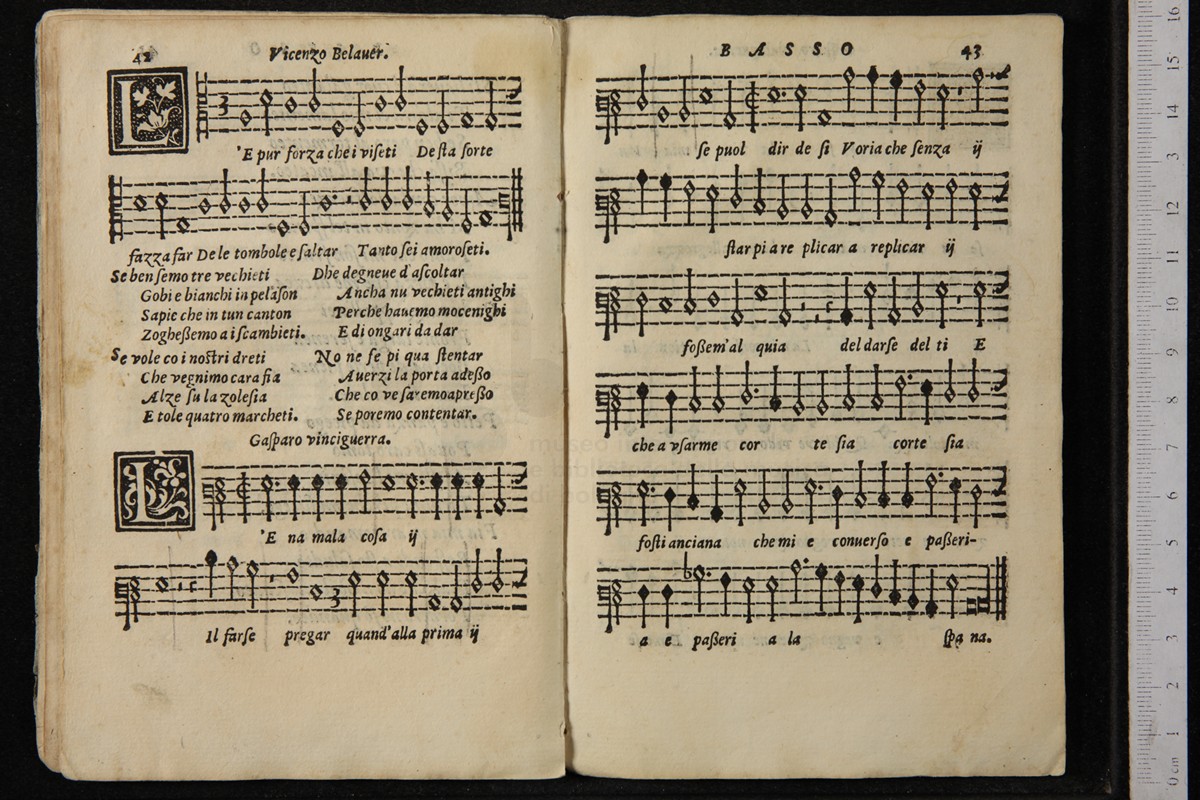 42
Vicenzo Belauer.
L'E pur forza che i viseti De sta sorte
fazza far De le tombole e saltar Tanto sei amoroseti.
Se ben semo tre vechieti
Gobi e bianchi in pelason
Sapie che in tun canton
Zogheßemo a i scambieti.
Se vole co i nostri dreti
Che vegnimo cara fia
Alze su la zolesia
E tole quatro marcheti.
Dhe degneue d'ascoltar
Ancha nu vechieti antighi
Perche hauemo mocenighi
E di ongari da dar
No ne se pi qua stentar
Auerzi la porta adeßo
Che co ve saremo apreßo
Se poremo contentar.
Gasparo vinciguerra.
L'E na mala cosa ij
Il farse pregar quand'alla prima ij
BASSO
43
se puol dir de si Voria che senza ij
star pi a re plicar a replicar ij
foßem'al quia del darse del ti E
che a vsarme cor te sia corte sia
fosti anciana che mi e conuerso e paßeri-
a e paßeri a la spa na.
0 cm
1
2
3
4
5
6
7
8
9
10
11
12
13
14
15
16